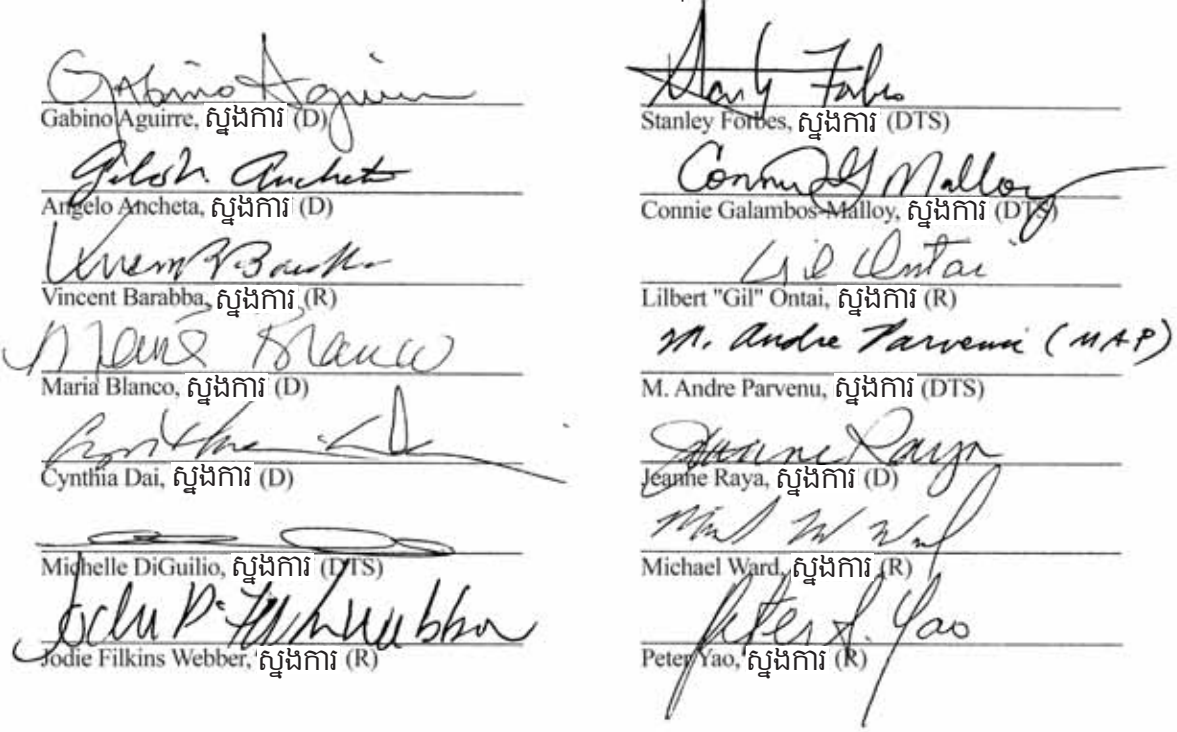 Gabino Aguirre
Gabino Aguirre, ស្នងការ (D)
Ancheta
Angelo Ancheta, ស្នងការ (D)
Vincent Barabba, ស្នងការ (R)
Blanco
Maria Blanco, ស្នងការ (D)
Cynthia Dai, ស្នងការ (D)
Michelle DiGuilio, ស្នងការ (DTS)
Jodie Filkins Webber, ស្នងការ (R)
Stanley Forbes, ស្នងការ (DTS)
Connie G Malloy
Connie Galambos-Malloy, ស្នងការ (DTS)
Gil Ontai
Lilbert "Gil" Ontai, ស្នងការ (R)
M. Andre Parvenu (MAP)
M. Andre Parvenu, ស្នងការ (DTS)
Jeanne Raya
Jeanne Raya, ស្នងការ (D)
Michael Ward, ស្នងការ (R)
Peter S. Yao
Peter Yao, ស្នងការ (R)